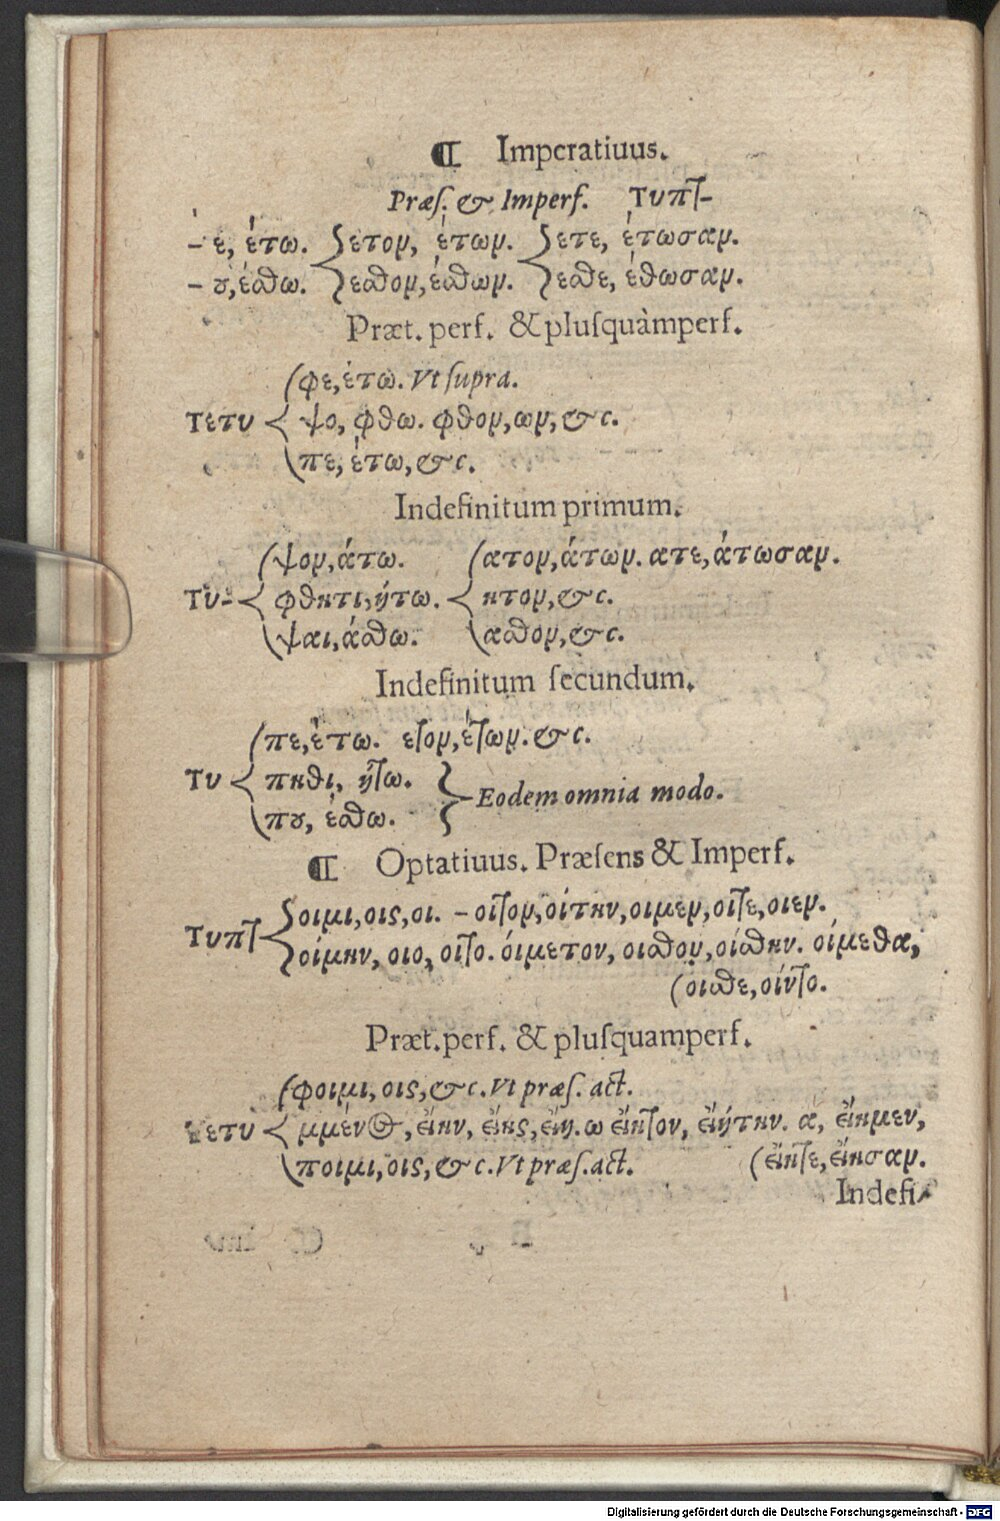 ¶ Imperatiuus.
Præſ. & Imperf. Τυπτ-
- ε, έτω. ετον, έτων. ετε, έτωσαν.
- ου, έσθω. εσθον, έσθων. εσθε, έθωσαν.
Præt. perf. & pluſquàmperf.
φε, έτω. Vt ſupra.
Τετυ ψο, φθω. φθον, ων, &c.
πε, έτω, &c.
Indefinitum primum.
ψον, άτω. ατον, άτων. ατε, άτωσαν.
Τυ- φθητι, ήτω. ητον, &c.
ψαι, άσθω. ασθον, &c.
Indefinitum ſecundum.
πε, έτω. ετον, έτων. &c.
Τυ πηθι, ήτω. Eodem omnia modo.
που, έσθω.
¶ Optatiuus. Præſens & Imperf.
οιμι, οις, οι. - οιτον, οίτην, οιμεν, οιτε, οιεν.
Τυπτ οίμην, οιο, οιτο. όιμετον, οισθον, οίσθην. οίμεθα,
(οισθε, οίντο.
Præt. perf. & pluſquamperf.
φοιμι, οις, &c. Vt præſ. act.
Τετυ μμένος, είην, είης, είη. ω είητον, ειήτην. α, είημεν,
ποιμι, οις, &c. Vt præſ. act. (είητε, είησαν.
Indefi-
Digitalisierung gefördert durch die Deutsche Forschungsgemeinschaft - DFG